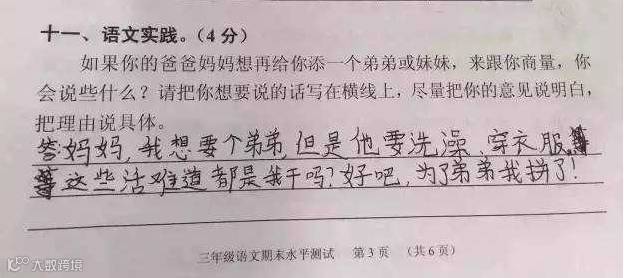 十一、语文实践。(4分)
如果你的爸爸妈妈想再给你添一个弟弟或妹妹，来跟你商量，你
会说些什么？请把你想要说的话写在横线上，尽量把你的意见说明白，
把理由说具体。
答妈妈，我想要个弟弟，但是他要洗澡、穿衣服等
等这些活难道都是我干吗？好吧，为了弟弟我拼了！
三年级语文期末水平测试 第3页 (共6页)
K°° 大数跨境